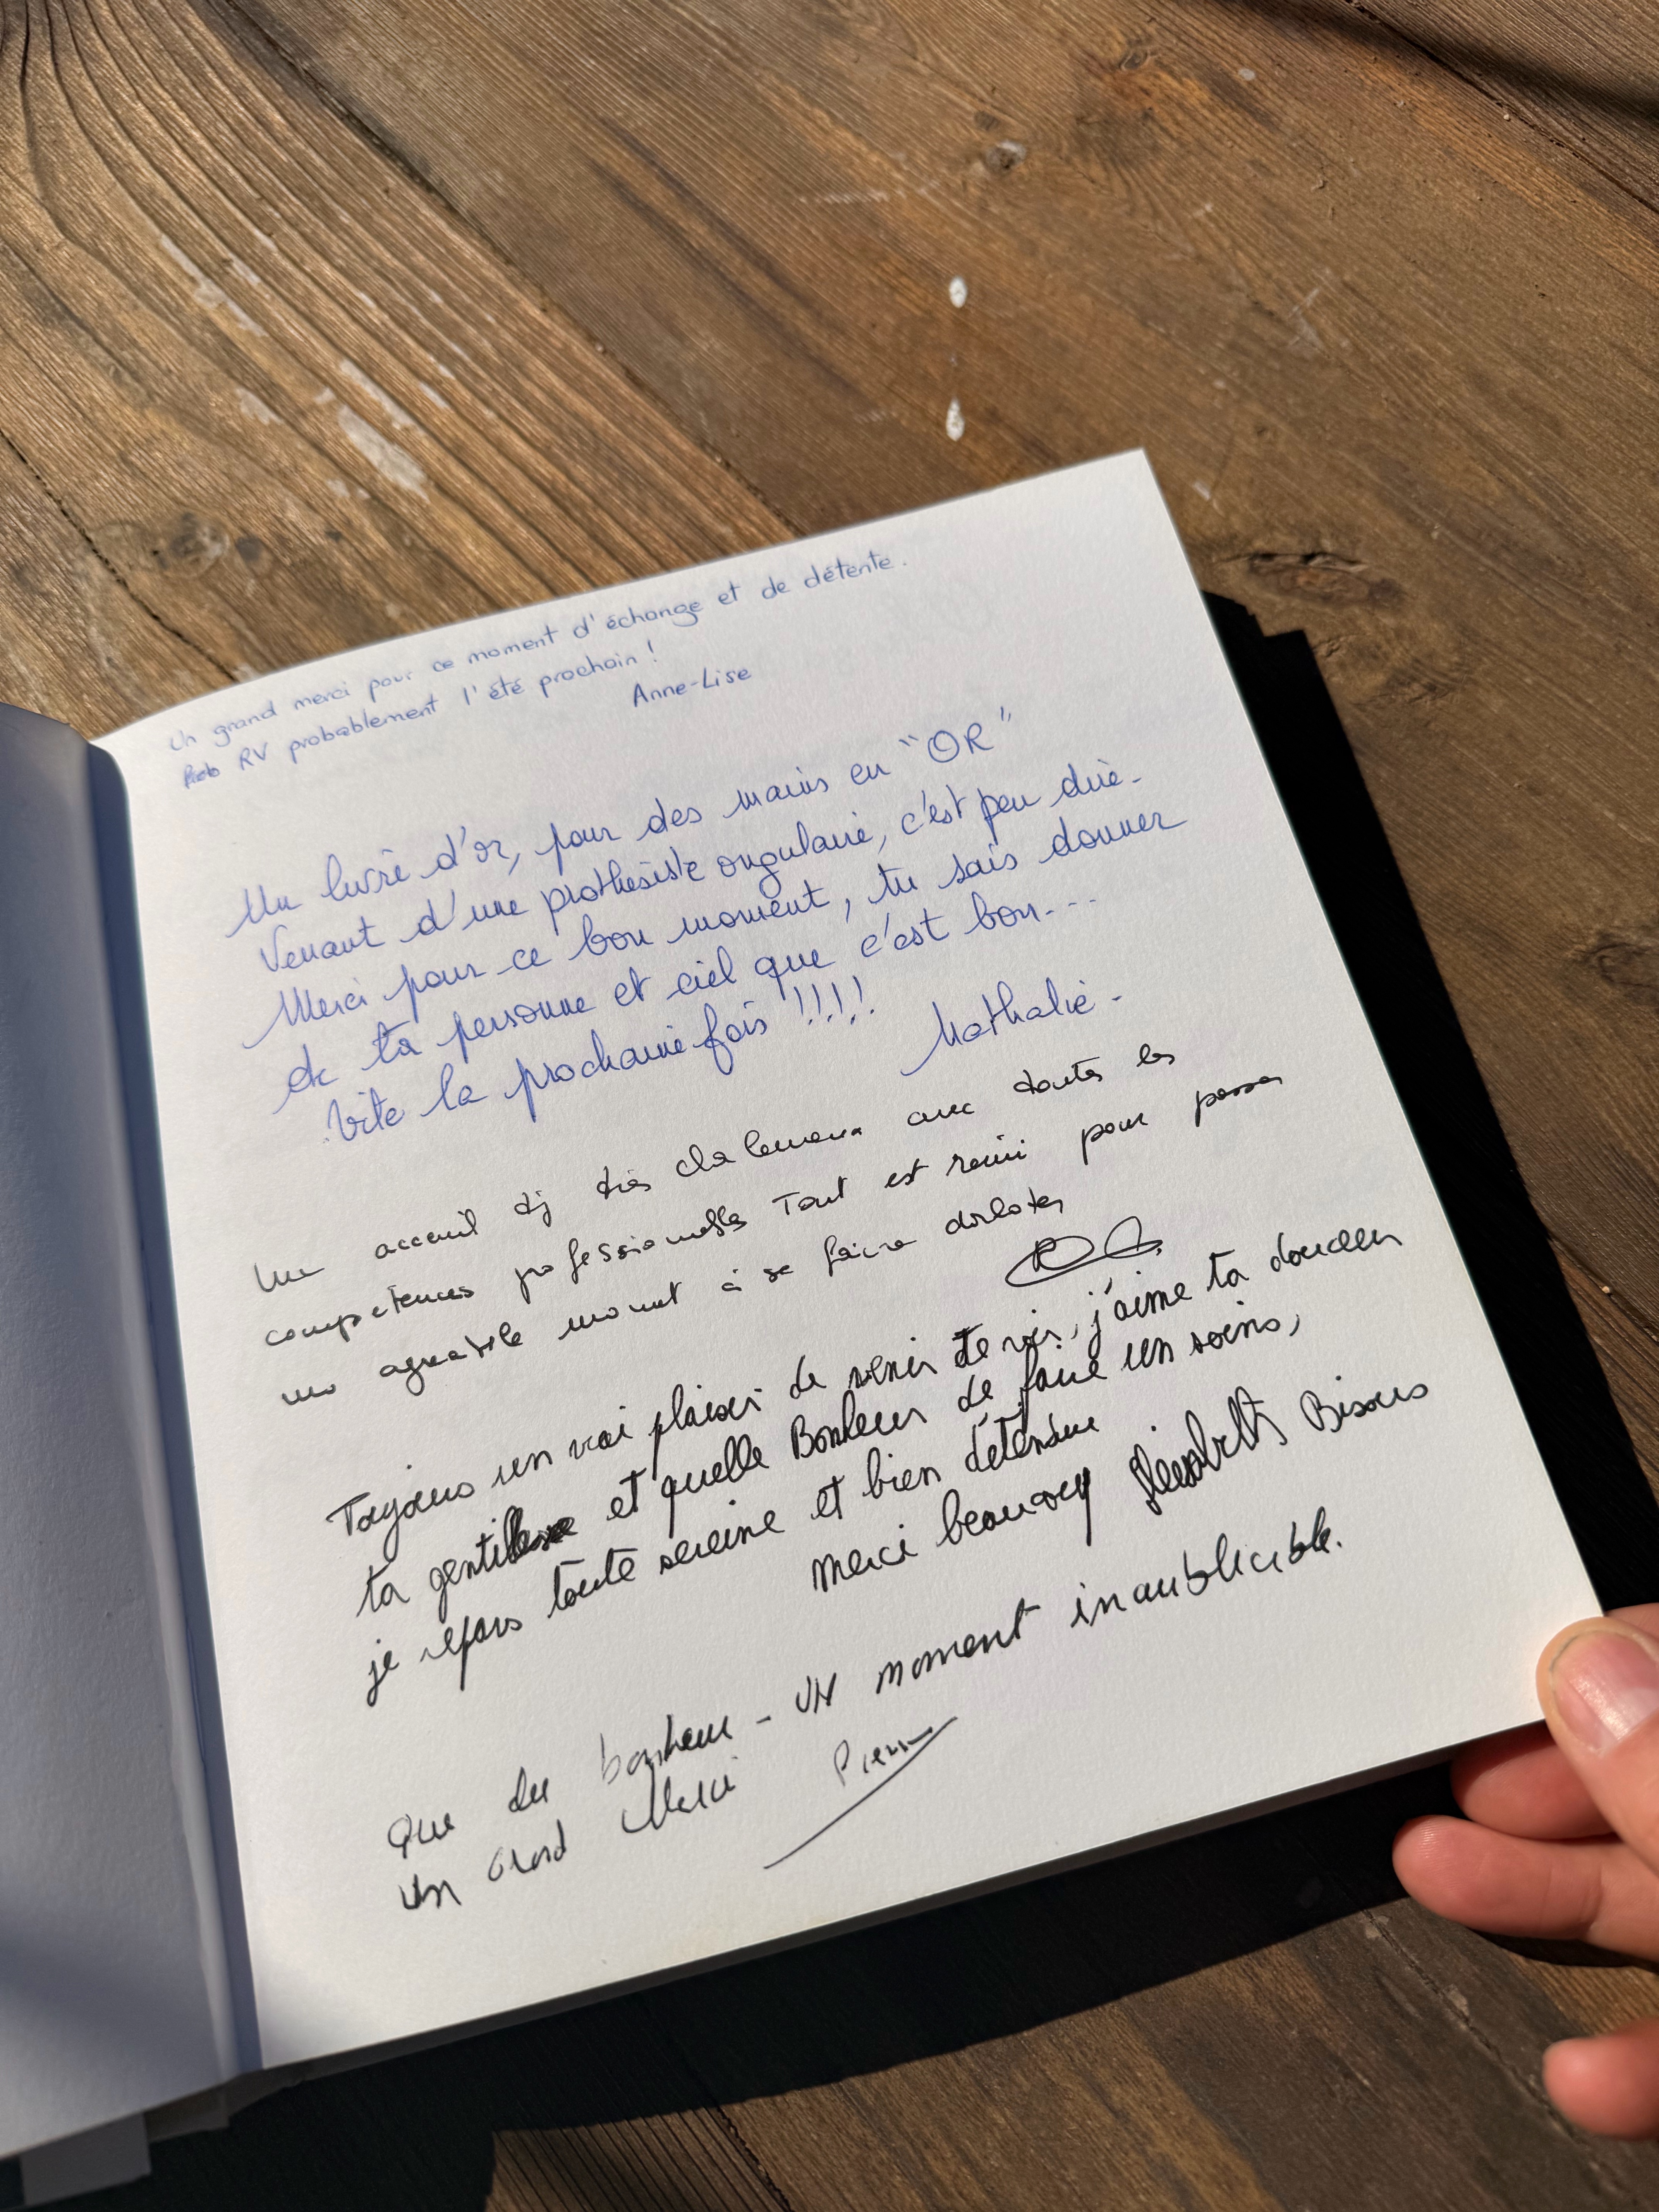 Un grand merci pour ce moment d'échange et de détente.
RV probablement l'été prochain !
Anne-Lise
Un livre d'or, pour des mains en "OR"
Venant d'une prothésiste ongulaire, c'est peu dire.
Merci pour ce bon moment, tu sais donner
de ta personne et ciel que c'est bon...
Vite la prochaine fois !!!!!
Nathalie -
Un accueil très chaleureux avec toutes les
compétences professionnelles Tout est réuni pour passer
un agréable moment à se faire dorloter
Toujours un vrai plaisir de venir te voir, j'aime ta douceur
ta gentillesse et quelle Bonheur de faire un soins,
je repars toute sereine et bien détendue
Merci beaucoup Bisous
Que du bonheur - UN moment inoublicible.
Un Grand Merci Pierre